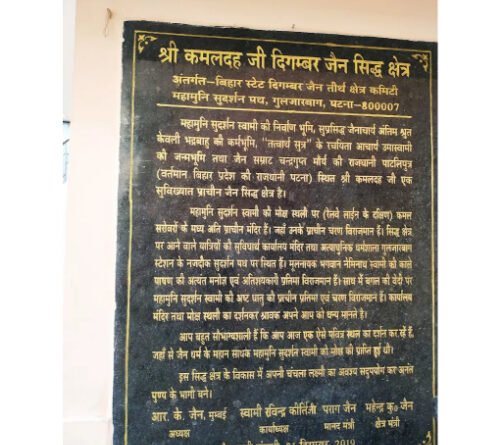 श्री कमलदह जी दिगम्बर जैन सिद्ध क्षेत्र
अंतर्गत-बिहार स्टेट दिगम्बर जैन तीर्थ क्षेत्र कमिटी
महामुनि सुदर्शन पथ, गुलजारबाग, पटना-800007
महामुनि सुदर्शन स्वामी की निर्वाण भूमि, सुप्रसिद्ध जैनाचार्य अंतिम श्रुत
केवली भद्रबाहु की कर्मभूमि, "तत्वार्थ सुत्र" के रचयिता आचार्य उमास्वामी
की जन्मभूमि तथा जैन सम्राट चन्द्रगुप्त मौर्य की राजधानी पाटलिपुत्र
(वर्तमान बिहार प्रदेश की राजधानी पटना) स्थित श्री कमलदह जी एक
सुविख्यात प्राचीन जैन सिद्ध क्षेत्र है।
महामुनि सुदर्शन स्वामी की मोक्ष स्थली पर (रेलवे लाईन के दक्षिण) कमल
सरोवरों के मध्य अति प्राचीन मंदिर हैं। जहाँ उनके प्राचीन चरण विराजमान हैं। सिद्ध क्षेत्र
पर आने वाले यात्रियों की सुविधार्थ कार्यालय मंदिर तथा अत्याधुनिक धर्मशाला गुलजारबाग
स्टेशन के नजदीक सुदर्शन पथ पर स्थित हैं। मूलनायक भगवान नेमिनाथ स्वामी की काले
पाषाण की अत्यंत मनोज्ञ एवं अतिशयकारी प्रतिमा विराजमान हैं। साथ में बगल की वेदी पर
महामुनि सुदर्शन स्वामी की अष्ट धातु की प्राचीन प्रतिमा एवं चरण विराजमान हैं। कार्यालय
मंदिर तथा मोक्ष स्थली का दर्शनकर श्रावक अपने आप को धन्य मानते है।
आप बहुत सौभाग्यशाली हैं कि आप आज एक ऐसे पवित्र स्थल का दर्शन कर रहें हैं,
जहाँ से जैन धर्म के महान साधक महामुनि सुदर्शन स्वामी को मोक्ष की प्राप्ति हुई थी।
इस सिद्ध क्षेत्र के विकास में अपनी चंचला लक्ष्मी का अवश्य सदुपयोग कर अनंत
पुण्य के भागी बनें।
आर. के. जैन, मुम्बई स्वामी रविन्द्र कीर्तिजी पराग जैन महेन्द्र कु० जैन
अध्यक्ष कार्याध्यक्ष मानद मंत्री क्षेत्र मंत्री
दिसम्बर 2019